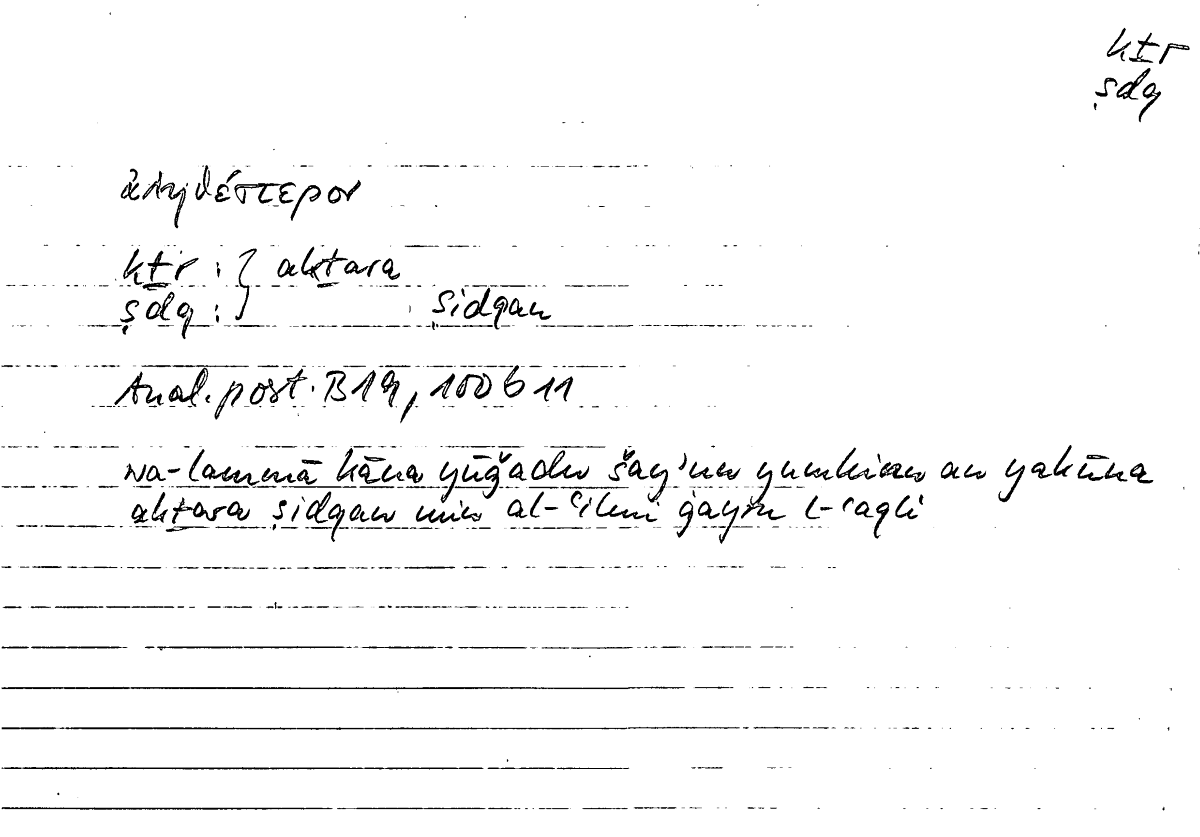 kṯr
ṣdq
ἀληθέστερον
kṯr : } akṯara
ṣdq : } ṣidqan
Anal. post. B19, 100 b 11
wa-lammā kāna yūǧadu šay'un yumkinu an yakūna
akṯara ṣidqan min al-ʿilmi ġayru l-ʿaqli